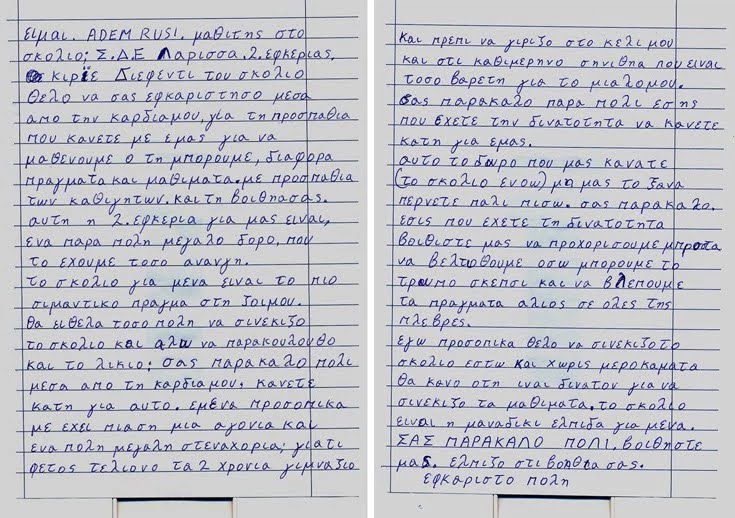 ειμαι. ADEM RUSI. μαθιτης στο
σκολιο; Σ.ΔΕ Λαρισσα.2.εφκεριας.
κιριε Διεφεντι του σκολιο
θελο να σας εφκαριστησο μεσα
απο την καρδιαμου, για τη προσπαθια
που κανετε με εμας για να
μαθενουμε ο τη μπορουμε, διαφορα
πραγματα και μαθιματα. με προσπαθια
των καθιγητων. και τη βοιθησας.
αυτη η 2.εφκερια για μας ειναι,
ενα παρα πολη μεγαλο δορο, που
το εχουμε τοσο αναγκη.
το σκολιο για μενα ειναι το πιο
σιμαντικο πραγμα στη ζοιμου.
θα ειθελα τοσο πολη να σινεκιζο
το σκολιο και αλω να παρακουλουθο
και το λικιο; σας παρακαλο πολι
μεσα απο τη καρδιαμου, κανετε
κατη για αυτο. εμενα προσοπικα
με εχει πιαση μια αγονια και
ενα πολη μεγαλη στεναχορια; γιατι
φετος τελιονο τα 2 χρονια γιμναζιο
και πρεπι να γιριζο στο κελι μου
και στι καθιμερηνο σηνιθηα που ειναι
τοσο βαρετη για το μιαλομου.
σας παρακαλο παρα πολι εσης
που εχετε την δινατοτητα να κανετε
κατη για εμας.
αυτο το δωρο που μας κανατε
(το σκολιο ενοω) μη μας το ξανα
περνετε παλι πισω. σας παρακαλο.
εσις που εχετε τη δινατοτητα
βοιθιστε μας να προχορισουμε μπροστα
να βελτιοθουμε οσω μπορουμε το
τροπο σκεπσι και να βλεπουμε
τα πραγματα αλιος σε ολες της
πλεβρες.
εγω προσοπικα θελο να σινεκιζοτο
σκολιο εστω και χωρις μεροκαματα
θα κανο οτη ιναι δινατον για να
σινεκιζο τα μαθιματα. το σκολιο
ειναι η μαναδικι ελπιδα για μενα.
ΣΑΣ ΠΑΡΑΚΑΛΟ ΠΟΛΙ. βοιθηστε
μας. ελπιζο στι βοηθια σας.
εφκαριστο πολη